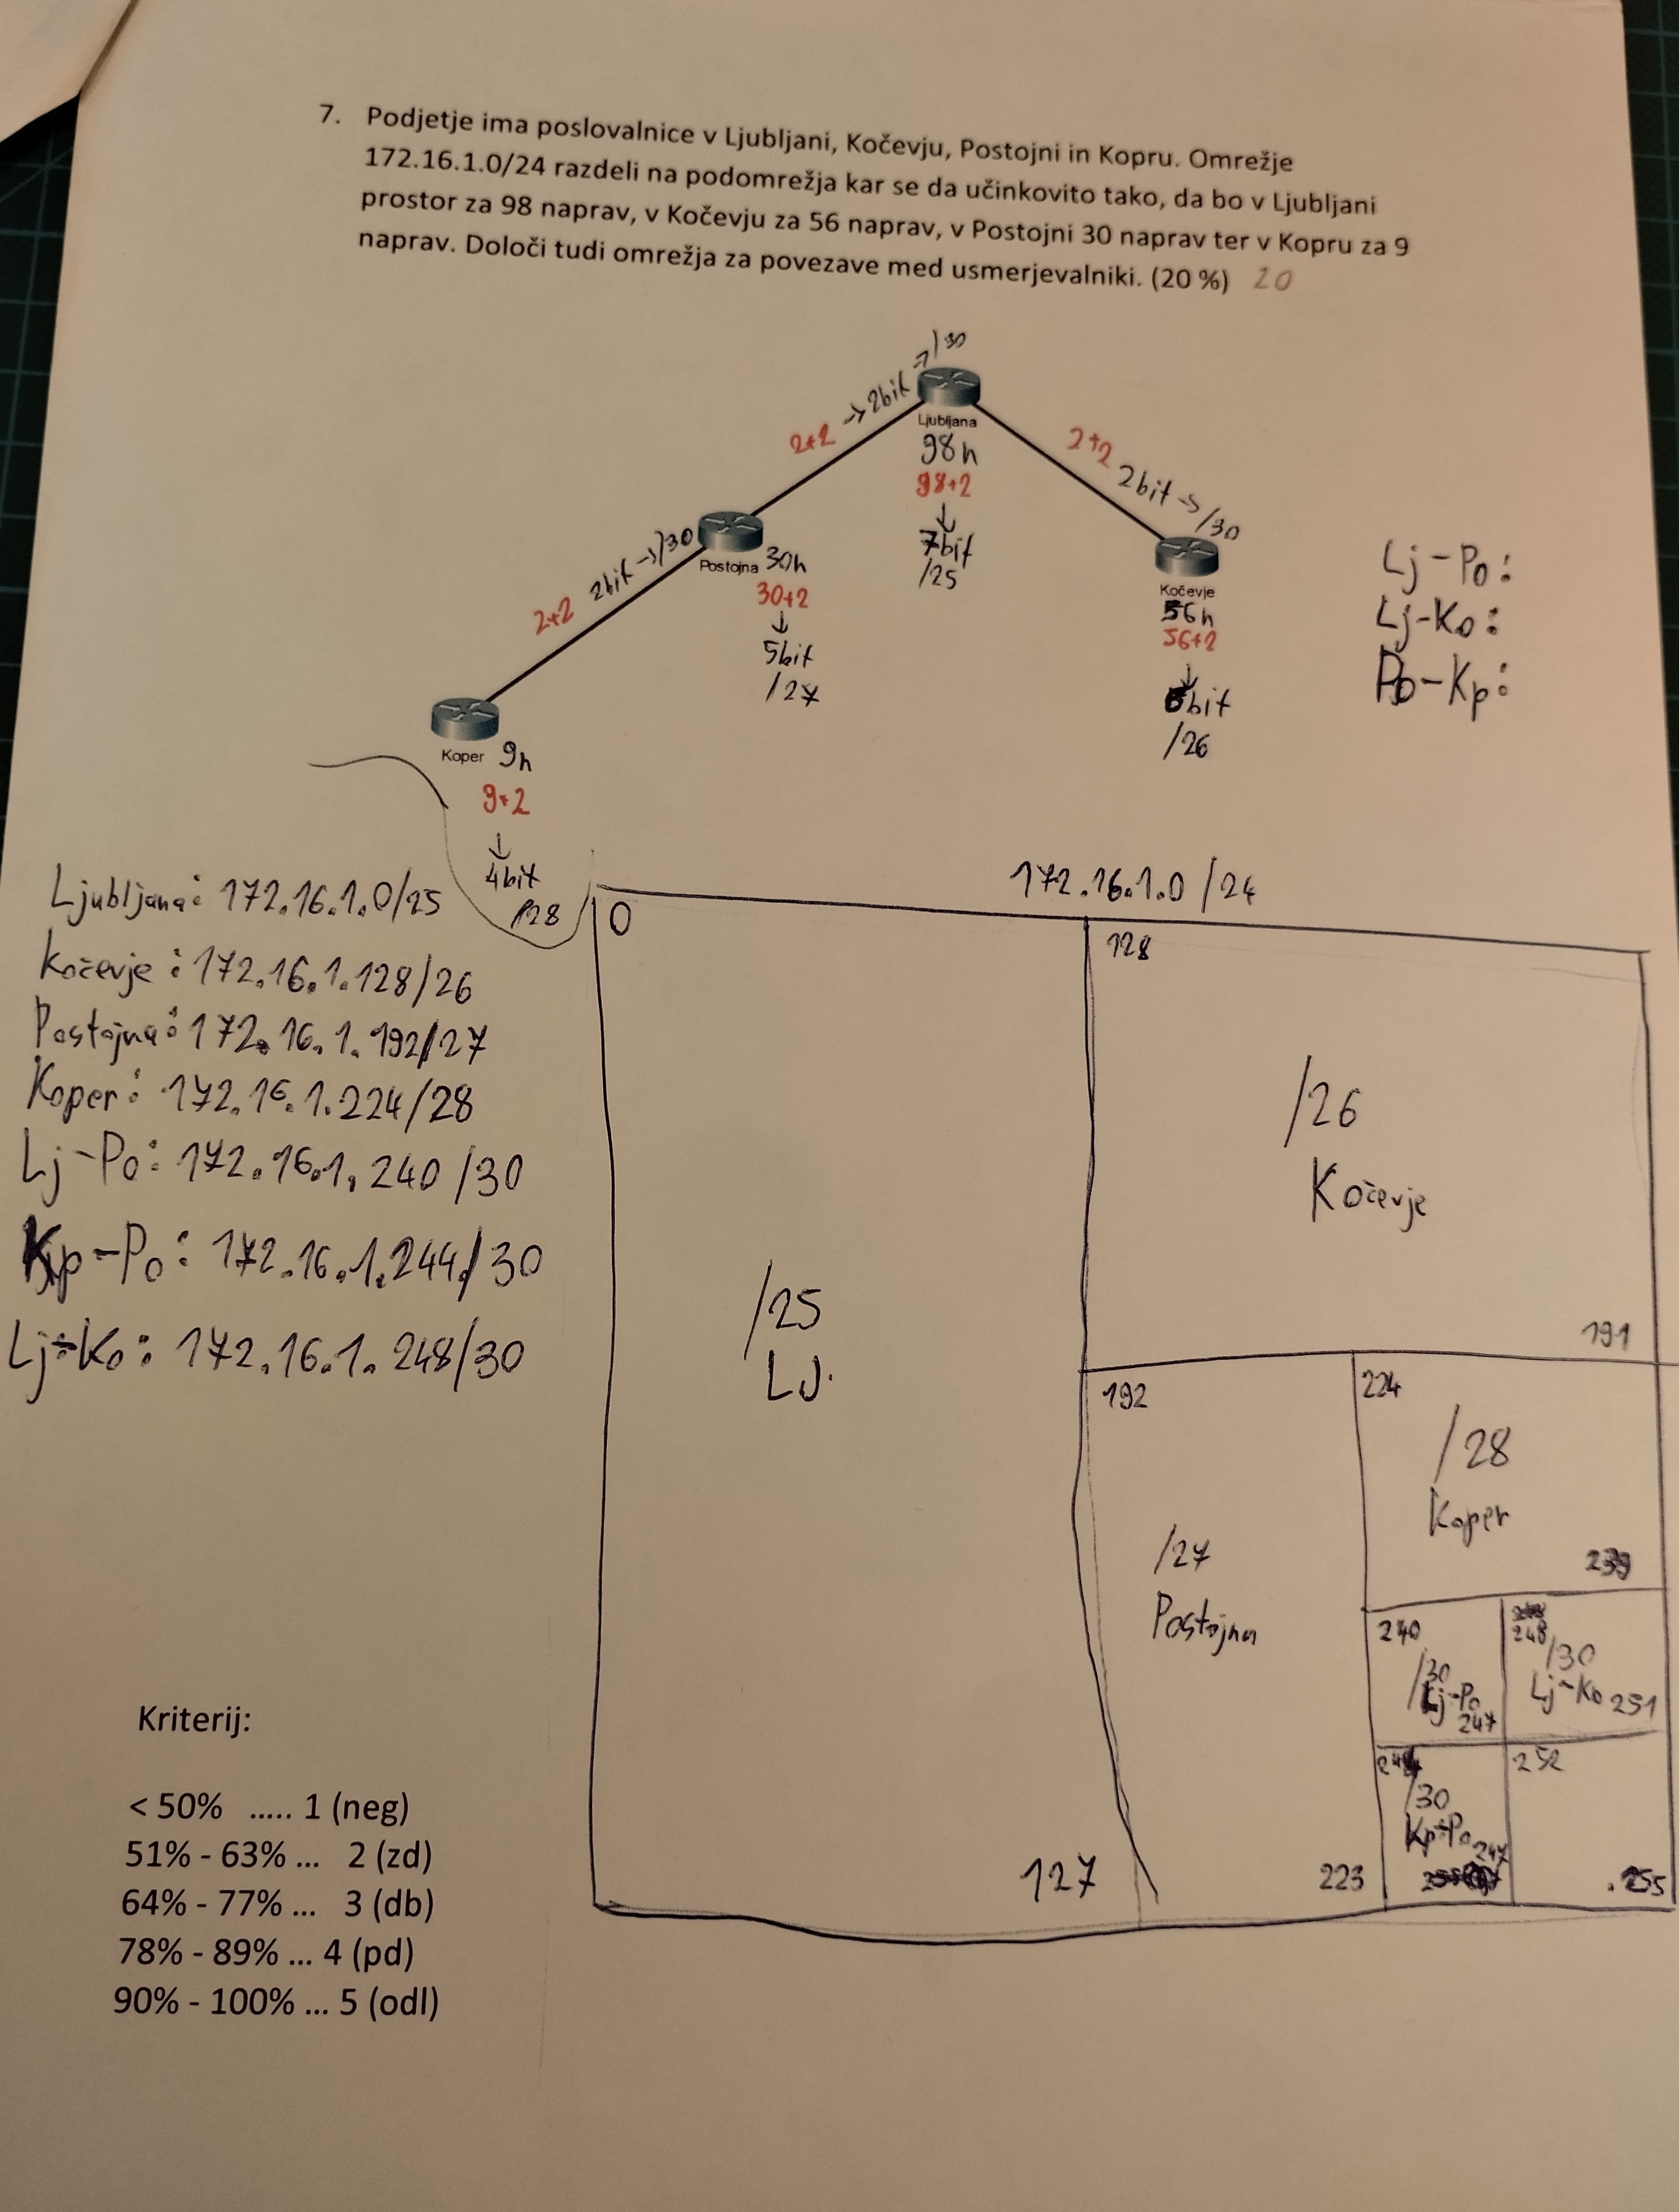 7. Podjetje ima poslovalnice v Ljubljani, Kočevju, Postojni in Kopru. Omrežje
172.16.1.0/24 razdeli na podomrežja kar se da učinkovito tako, da bo v Ljubljani
prostor za 98 naprav, v Kočevju za 56 naprav, v Postojni 30 naprav ter v Kopru za 9
naprav. Določi tudi omrežja za povezave med usmerjevalniki. (20 %) 20
2+2 → 2bit → /30
Ljubljana
98h
98+2
↓
7bit
/25
2+2 2bit → /30
2+2 2bit → /30
Postojna 30h
30+2
↓
5bit
/27
Kočevje
56h
56+2
↓
6bit
/26
Lj-Po:
Lj-Ko:
Po-Kp:
Koper 9h
9+2
↓
4bit
/28
Ljubljana: 172.16.1.0/25
Kočevje: 172.16.1.128/26
Postojna: 172.16.1.192/27
Koper: 172.16.1.224/28
Lj-Po: 172.16.1.240/30
Kp-Po: 172.16.1.244/30
Lj-Ko: 172.16.1.248/30
172.16.1.0/24
0
/25
LJ.
127
128
/26
Kočevje
191
192
/27
Postojna
223
224
/28
Koper
239
240
/30
Lj-Po
247
248
/30
Lj-Ko 251
244
/30
Kp-Po 247
252
.255
Kriterij:
< 50% ..... 1 (neg)
51% - 63% ... 2 (zd)
64% - 77% ... 3 (db)
78% - 89% ... 4 (pd)
90% - 100% ... 5 (odl)